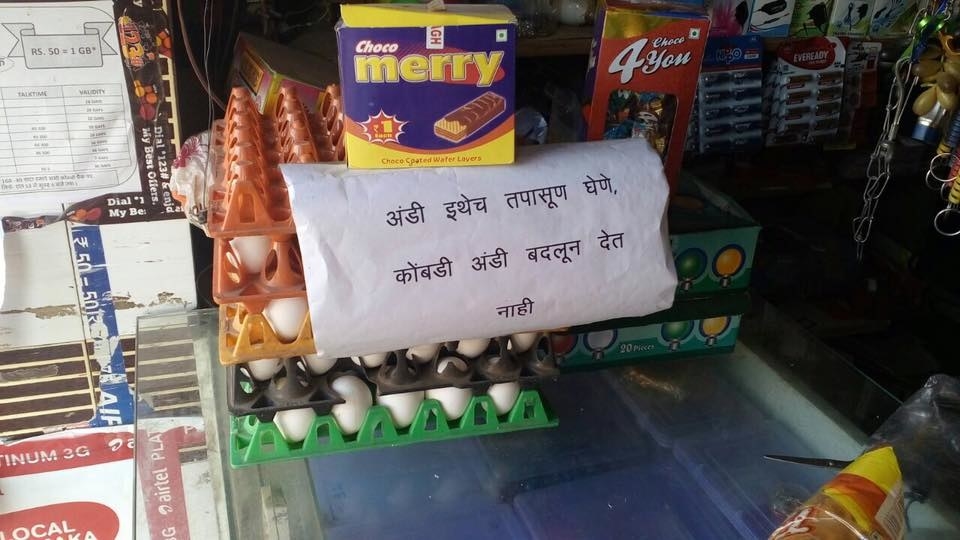 RS. 50 = 1 GB*
TALKTIME VALIDITY
Dial *123# & enjoy
My Best Offers.
Dial *1
My Be
₹ 50 - 50
TINUM 3G
LOCAL
airtel
Choco
merry
GH
₹1
Each
Choco Coated Wafer Layers
Choco
4 You
EVEREADY
अंडी इथेच तपासूण घेणे,
कोंबडी अंडी बदलून देत
नाही
20 Pieces